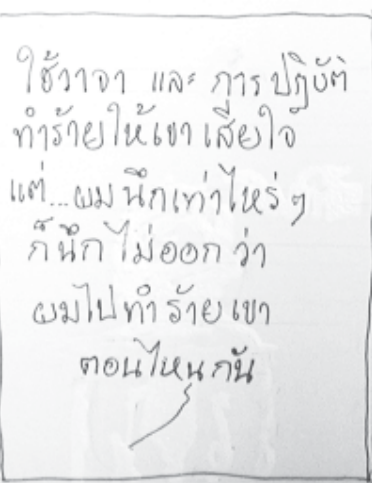 ใช้วาจา และ การปฏิบัติ
ทำร้ายให้เขาเสียใจ
แต่...ผมนึกเท่าไหร่ๆ
ก็นึกไม่ออกว่า
ผมไปทำร้ายเขา
ตอนไหนกัน